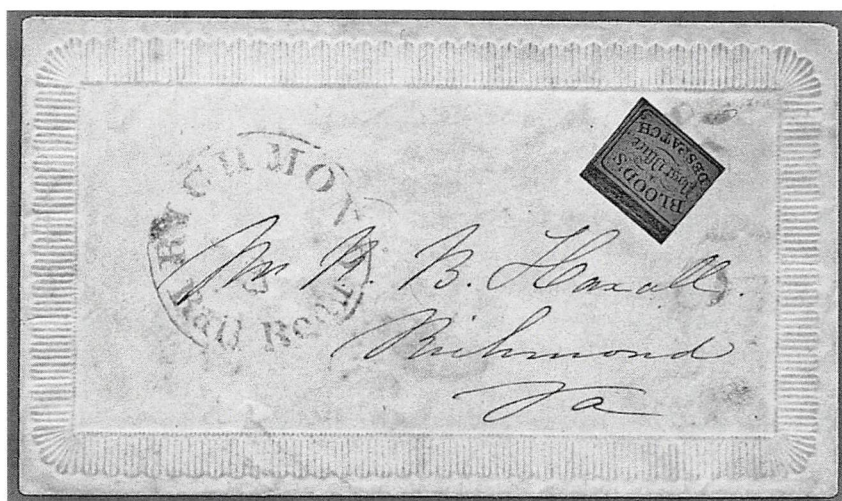 RICHMON
Rail Road
BLOOD'S
Post Office
DESPATCH
Mr R. B. Haxall.
Richmond
Va